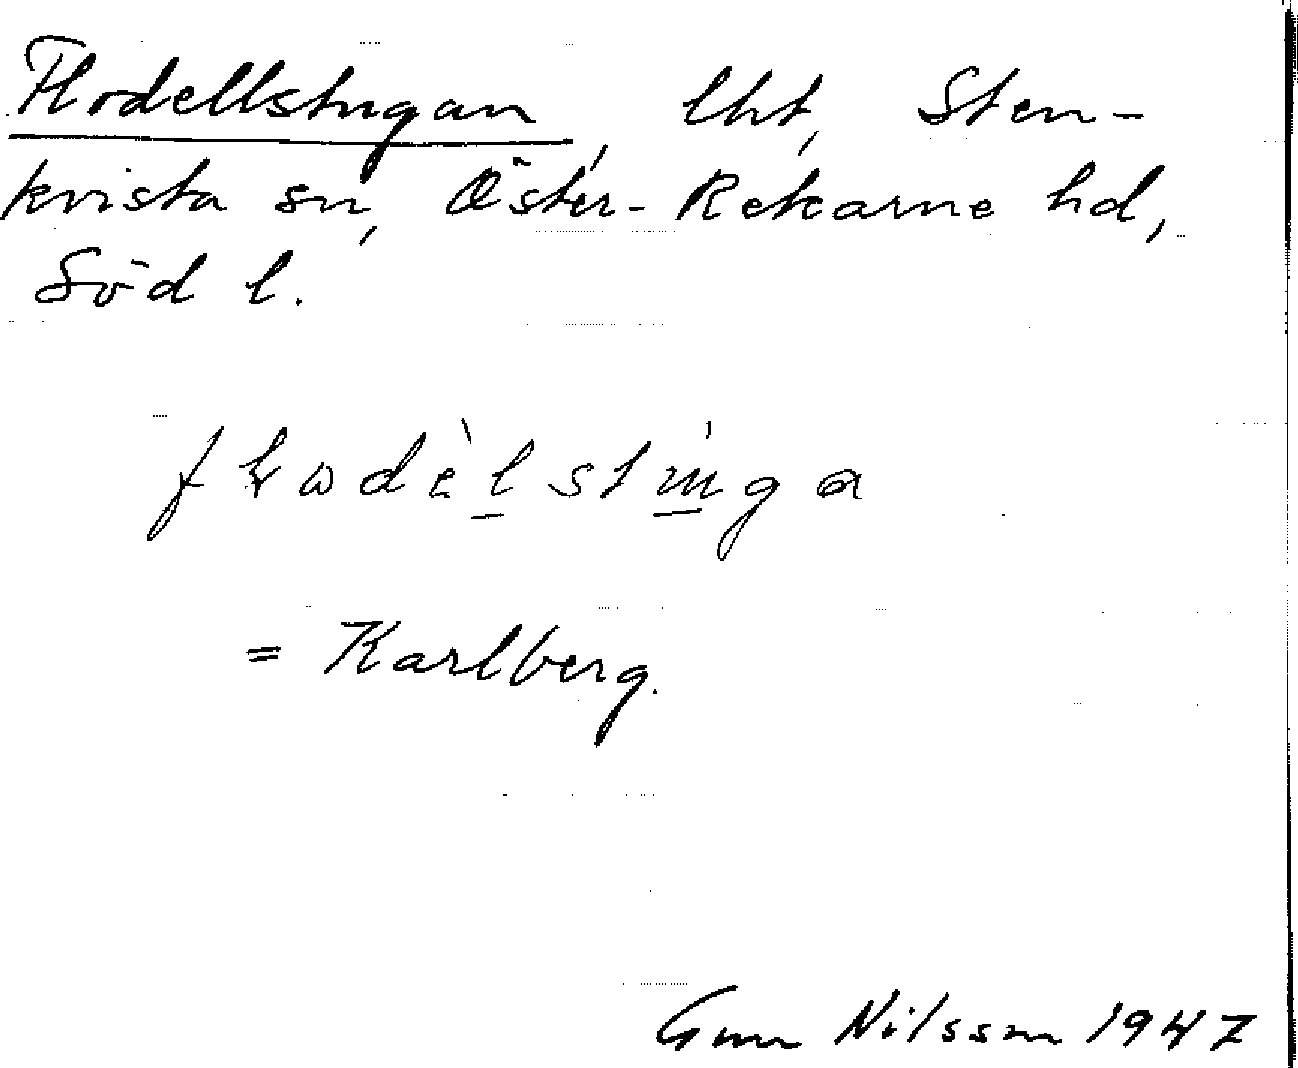 Flodellstugan, lht, Sten-
kvista sn, Öster-Rekarne hd,
Söd l.
= Karlberg.
Gun Nilsson 1947